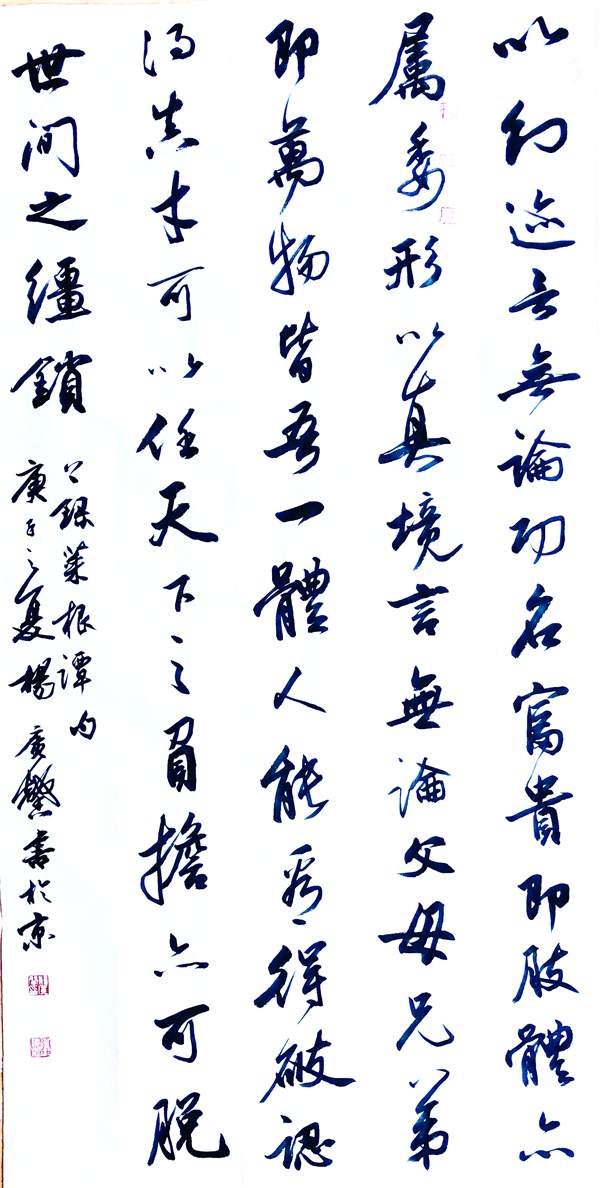 以幻迹言無論功名富貴即肢體亦
属委形以真境言無論父母兄弟
即萬物皆吾一體人能看得破認
得真才可以任天下之負擔亦可脱
世间之繮鎖
上録菜根谭句
庚子之夏楊廣馨書於京